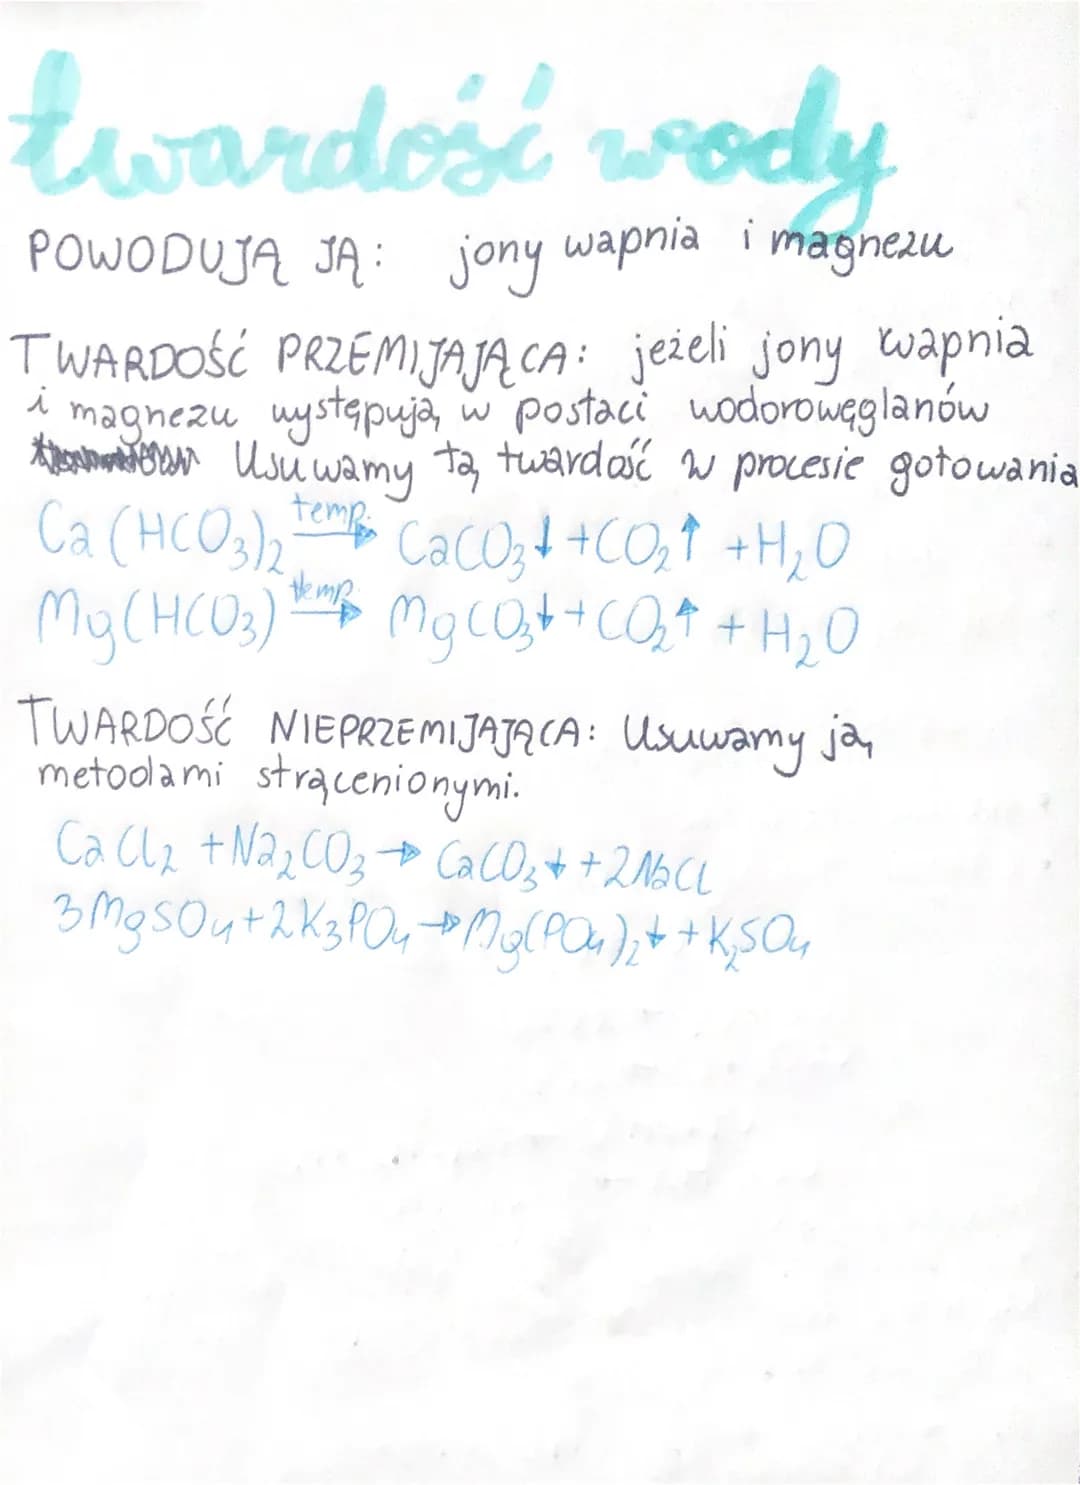 twardość wody
POWODUJĄ JĄ: jony wapnia i magnezu
TWARDOŚĆ PRZEMIJAJĄCA: jeżeli jony wapnia
i magnezu występują w postaci wodorowęglanów
Usuwamy tą twardość w procesie gotowania
Ca(HCO₃)₂ temp.→ CaCO₃↓ + CO₂↑ + H₂O
Mg(HCO₃) temp.→ MgCO₃↓ + CO₂↑ + H₂O
TWARDOŚĆ NIEPRZEMIJAJĄCA: Usuwamy ją
metodami strąceniowymi.
CaCl₂ + Na₂CO₃ → CaCO₃↓ + 2NaCl
3MgSO₄ + 2K₃PO₄ → Mg(PO₄)₂↓ + K₂SO₄